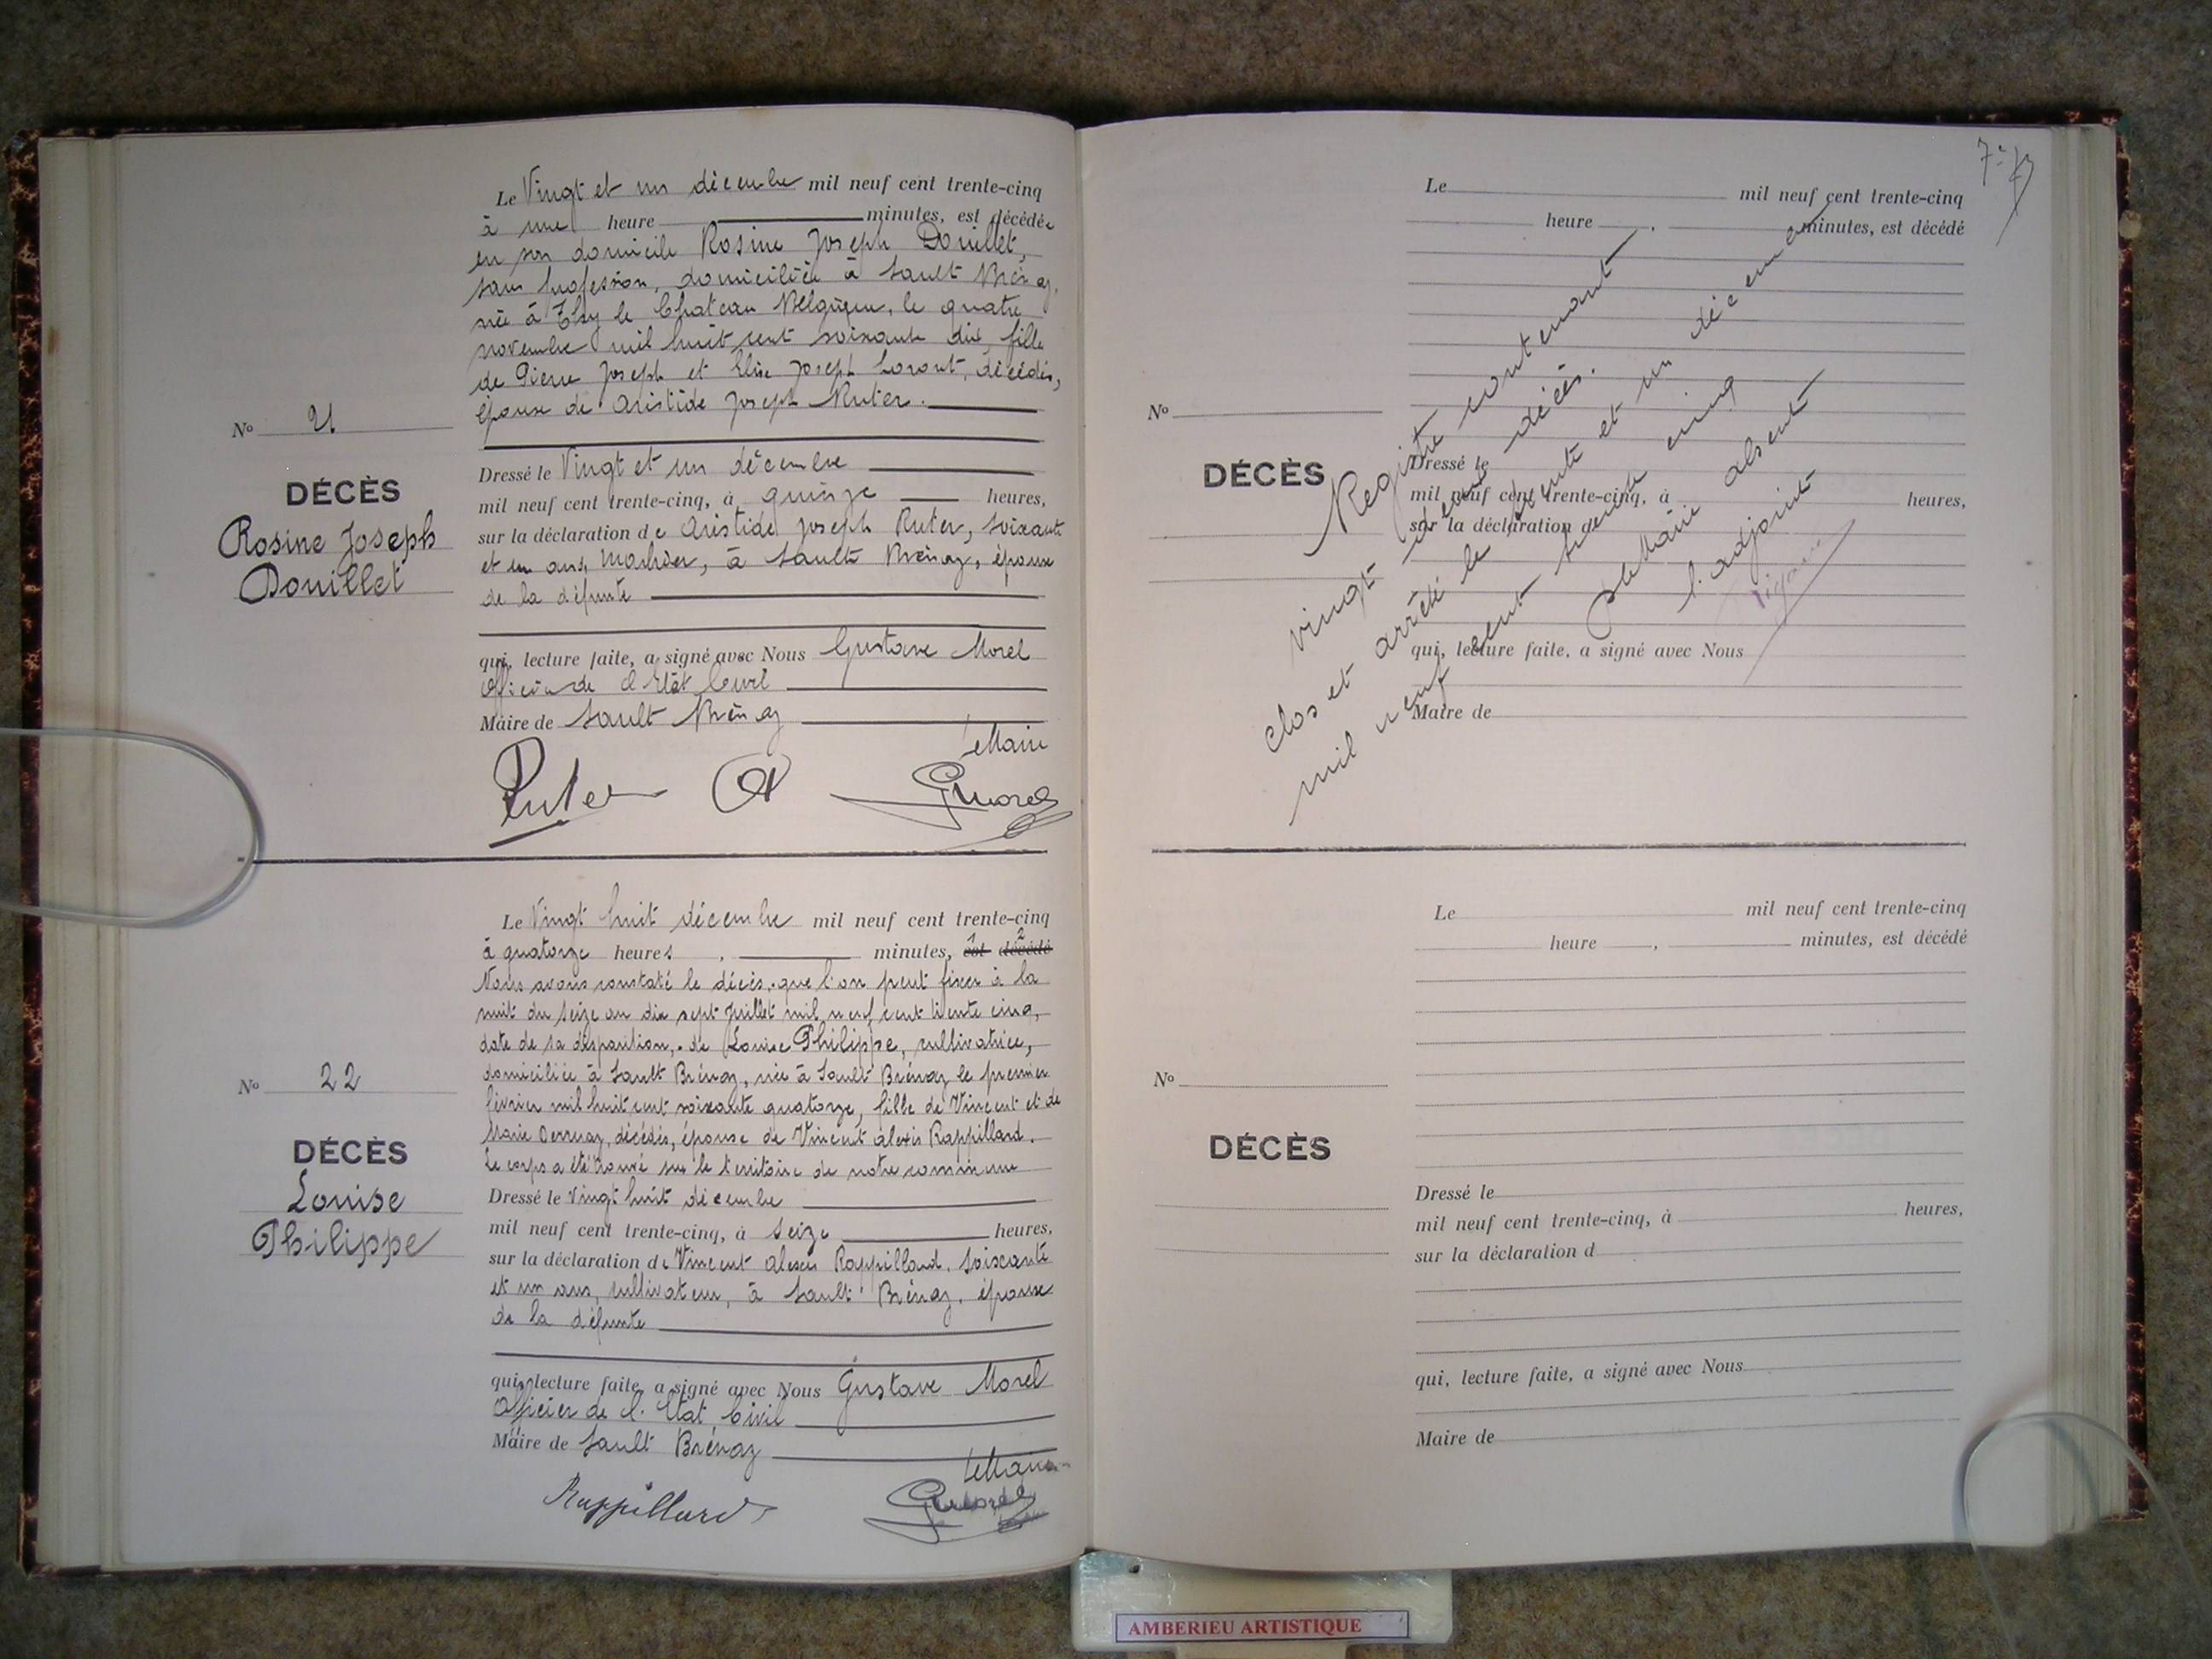 Le Vingt et un décembre mil neuf cent trente-cinq
à une heure minutes, est décédée
en son domicile Rosine Joseph Douillet,
sans profession, domiciliée à Sault Brénaz,
née à Thy le Chateau Belgique, le quatre
novembre mil huit cent soixante dix, fille
de Pierre Joseph et Elise Joseph Lorant, décédés,
épouse de Aristide Joseph Ruter.
No 21
DÉCÈS
Rosine Joseph
Douillet
Dressé le Vingt et un décembre
mil neuf cent trente-cinq, à quinze heures,
sur la déclaration de Aristide Joseph Ruter, soixante
et un ans, , à Sault Brénaz, époux
de la défunte
qui, lecture faite, a signé avec Nous Gustave Morel
Officier de l'Etat Civil
Maire de Sault Brénaz
le Maire
Ruter GMorel
Le Vingt huit décembre mil neuf cent trente-cinq
à quatorze heures , minutes, est décédé
Nous avons constaté le décès, que l'on peut fixer à la
nuit du seize au dix sept Juillet mil neuf cent trente cinq,
date de sa disparition, de Louise Philippe, cultivatrice,
domiciliée à Sault Brénaz, née à Sault Brénaz le premier
février mil huit cent soixante quatorze, fille de Vincent et de
Marie , décédés, épouse de Vincent Alexis Rappillard.
Le corps a été trouvé sur le territoire de notre commune
No 22
DÉCÈS
Louise
Philippe
Dressé le vingt huit décembre
mil neuf cent trente-cinq, à seize heures,
sur la déclaration de Vincent Alexis Rappillard, soixante
et un ans, cultivateur, à Sault Brénaz, époux
de la défunte
qui, lecture faite, a signé avec Nous Gustave Morel
Officier de l'Etat Civil
Maire de Sault Brénaz
le Maire
Rappillard GMorel
Le mil neuf cent trente-cinq
heure , minutes, est décédé
No
DÉCÈS
Dressé le
mil neuf cent trente-cinq, à heures,
sur la déclaration d
qui, lecture faite, a signé avec Nous
Maire de
Registre contenant
vingt deux décès.
clos et arrêté le trente et un décembre
mil neuf cent trente cinq
P le Maire absent
l'adjoint
Le mil neuf cent trente-cinq
heure , minutes, est décédé
No
DÉCÈS
Dressé le
mil neuf cent trente-cinq, à heures,
sur la déclaration d
qui, lecture faite, a signé avec Nous
Maire de
AMBERIEU ARTISTIQUE